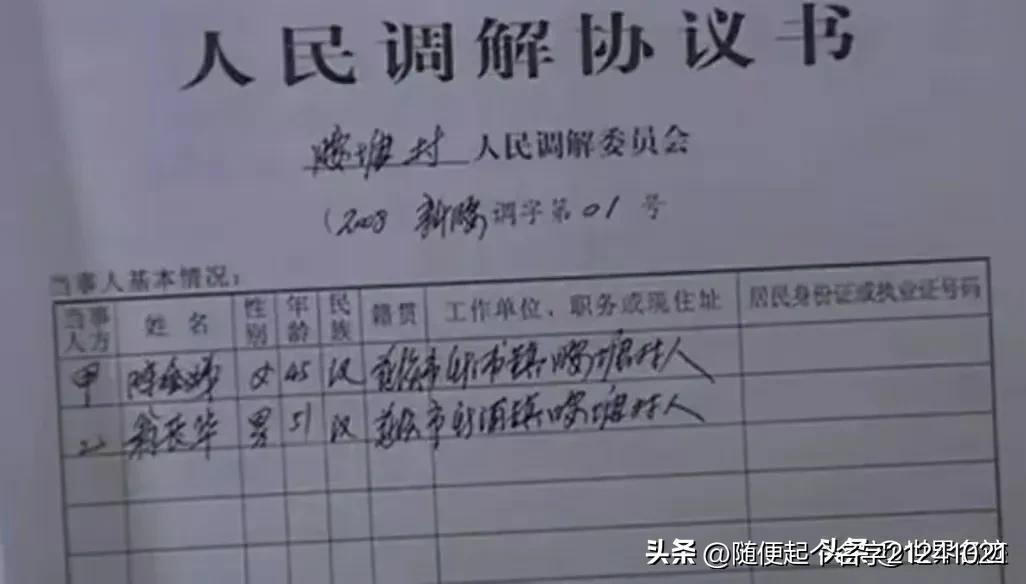 人民调解协议书
腰塘村人民调解委员会
(2008 新腰调字第01号
当事人基本情况:
当事人方 姓名 性别 年龄 民族 籍贯 工作单位、职务或现住址 居民身份证或执业证号码
甲 陈 女 45 汉 慈溪市新浦镇腰塘村人
乙 翁长华 男 51 汉 慈溪市新浦镇腰塘村人
头条 @随便起个名字21241021
头条